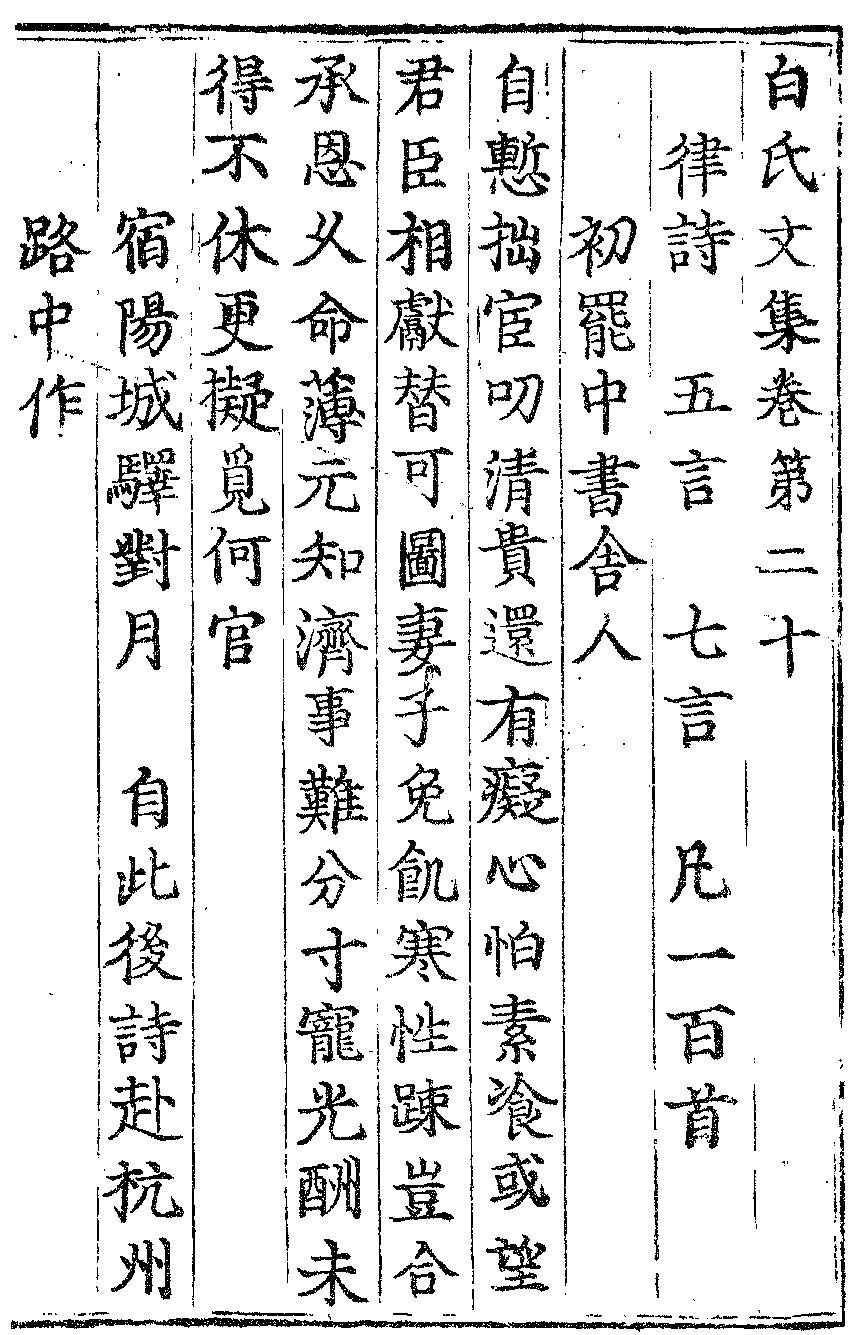 白氏文集卷第二十
律詩　五言　七言　凡一百首
初罷中書舍人
自慙拙宦叨清貴還有癡心怕素飡或望
君臣相獻替可圖妻子免飢寒性踈豈合
承恩乆命薄元知濟事難分寸寵光酬未
得不休更擬覓何官
宿陽城驛對月　自此後詩赴杭州
路中作